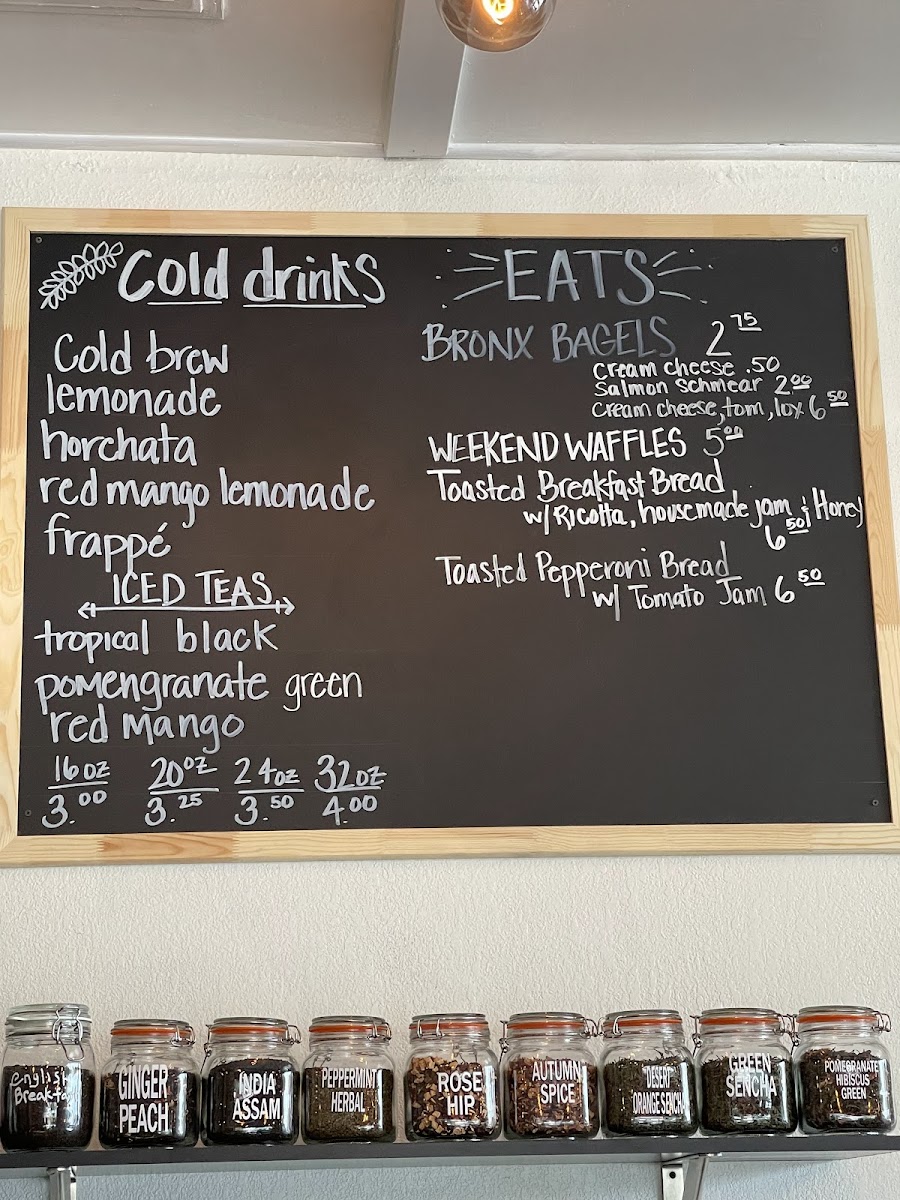 Cold drinks
Cold brew
lemonade
horchata
red mango lemonade
frappé
ICED TEAS
tropical black
pomengranate green
red mango
16oz 20oz 24oz 32oz
3.00 3.25 3.50 4.00
EATS
BRONX BAGELS 2 75
cream cheese .50
Salmon Schmear 2 00
cream cheese, tom, lox 6 50
WEEKEND WAFFLES 5 00
Toasted Breakfast Bread
w/ Ricotta, housemade jam & Honey
6 50
Toasted Pepperoni Bread
w/ Tomato Jam 6 50
English
Breakfa
GINGER
PEACH
INDIA
ASSAM
PEPPERMINT
HERBAL
ROSE
HIP
AUTUMN
SPICE
DESERT
ORANGE SENCH
GREEN
SENCHA
POMEGRANATE
HIBISCUS
GREEN